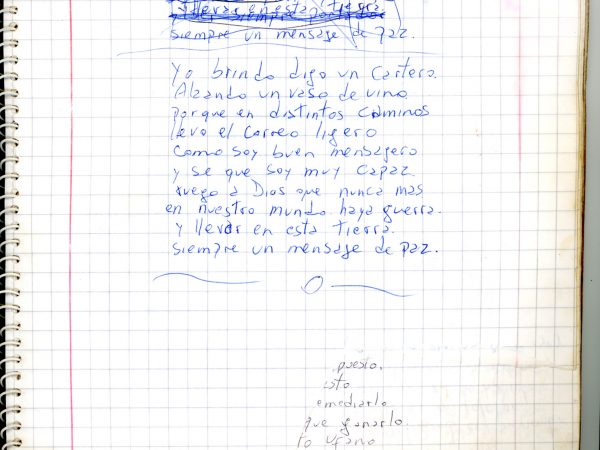 llevar en esta tierra
siempre un mensage de paz.
Yo brindo digo un Cartero.
Alzando un vaso de vino
porque en distintos caminos
llevo el Correo ligero
Como soy buen mensagero
y se que soy muy Capaz
ruego a Dios que nunca mas
en nuestro mundo haya guerra.
y llevar en esta tierra.
siempre un mensage de paz.
puesto.
esto
emediarlo
que ganarlo.
to ufano